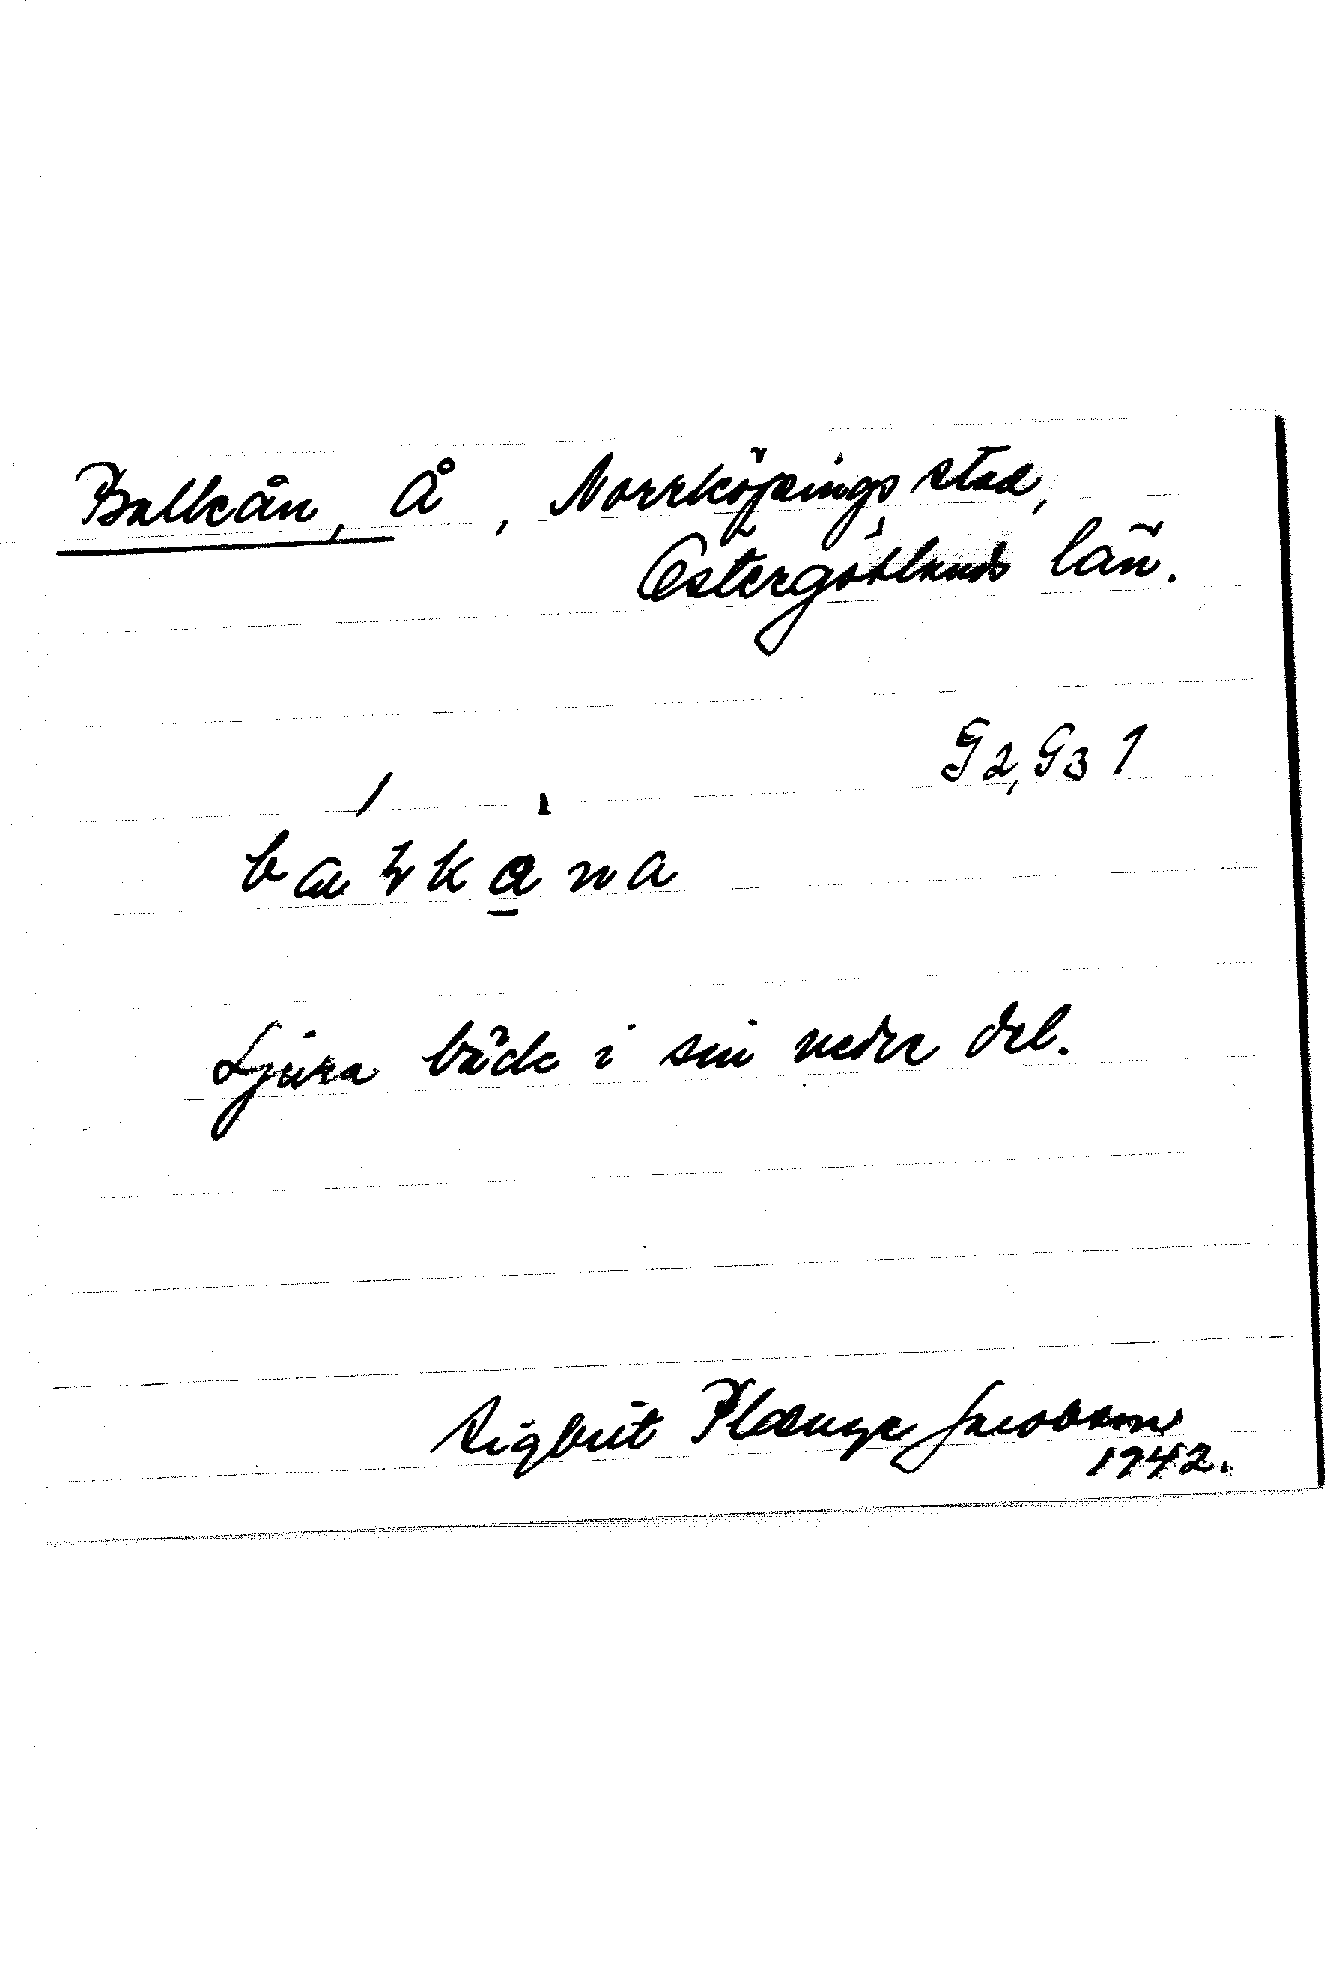 Balkån, Å, Norrköpings stad,
Östergötlands län.
G2, G3 1
Ljura bäck i sin nedre del.
Sigbrit Plænge Jacobson
1942.